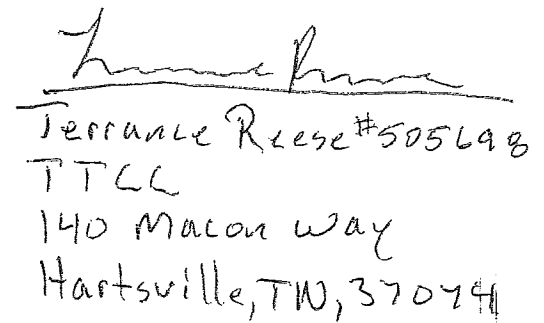 Terrance Reese #505698
TTCC
140 Macon Way
Hartsville, TN, 37074